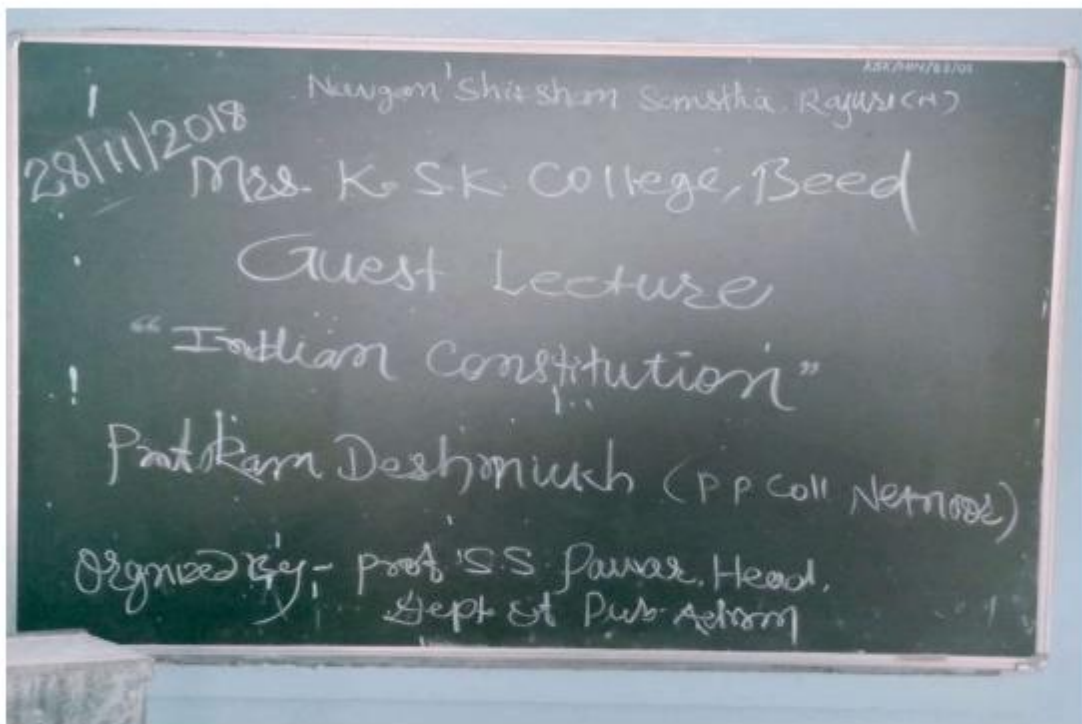 28/11/2018
Navgan Shikshan Samstha Rajuri (N)
Mrs. K. S.K. College, Beed
Guest Lecture
“Indian Constitution”
Prof. Ram Deshmukh (P P Coll
Orgnized By:- Prof S.S. Pawar. Head.
Dept of Pub. Admn